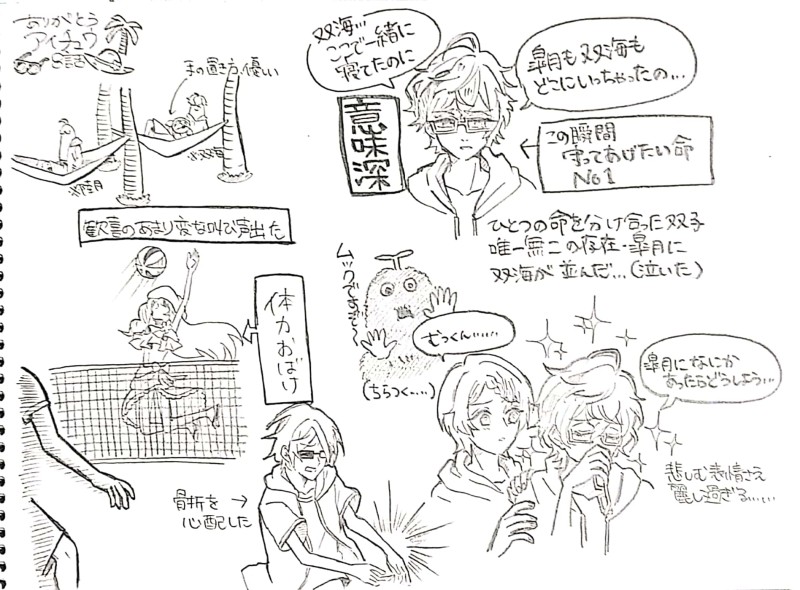 ありがとう
アイチュウ
8話
手の置き方、優しい
※双海
※皐月
双海…
ここで一緒に
寝てたのに
皐月も双海も
どこにいっちゃったの…
意味深
この瞬間
守ってあげたい命
No1
歓喜のあまり変な叫び声出た
ひとつの命を分け合った双子
唯一無二の存在・皐月に
双海が並んだ…(泣いた)
体力おばけ
ムックですぞ〜
(ちらつく……)
むっくん……
皐月になにか
あったらどうしよう…
骨折を
心配した
悲しむ表情さえ
麗し過ぎる……